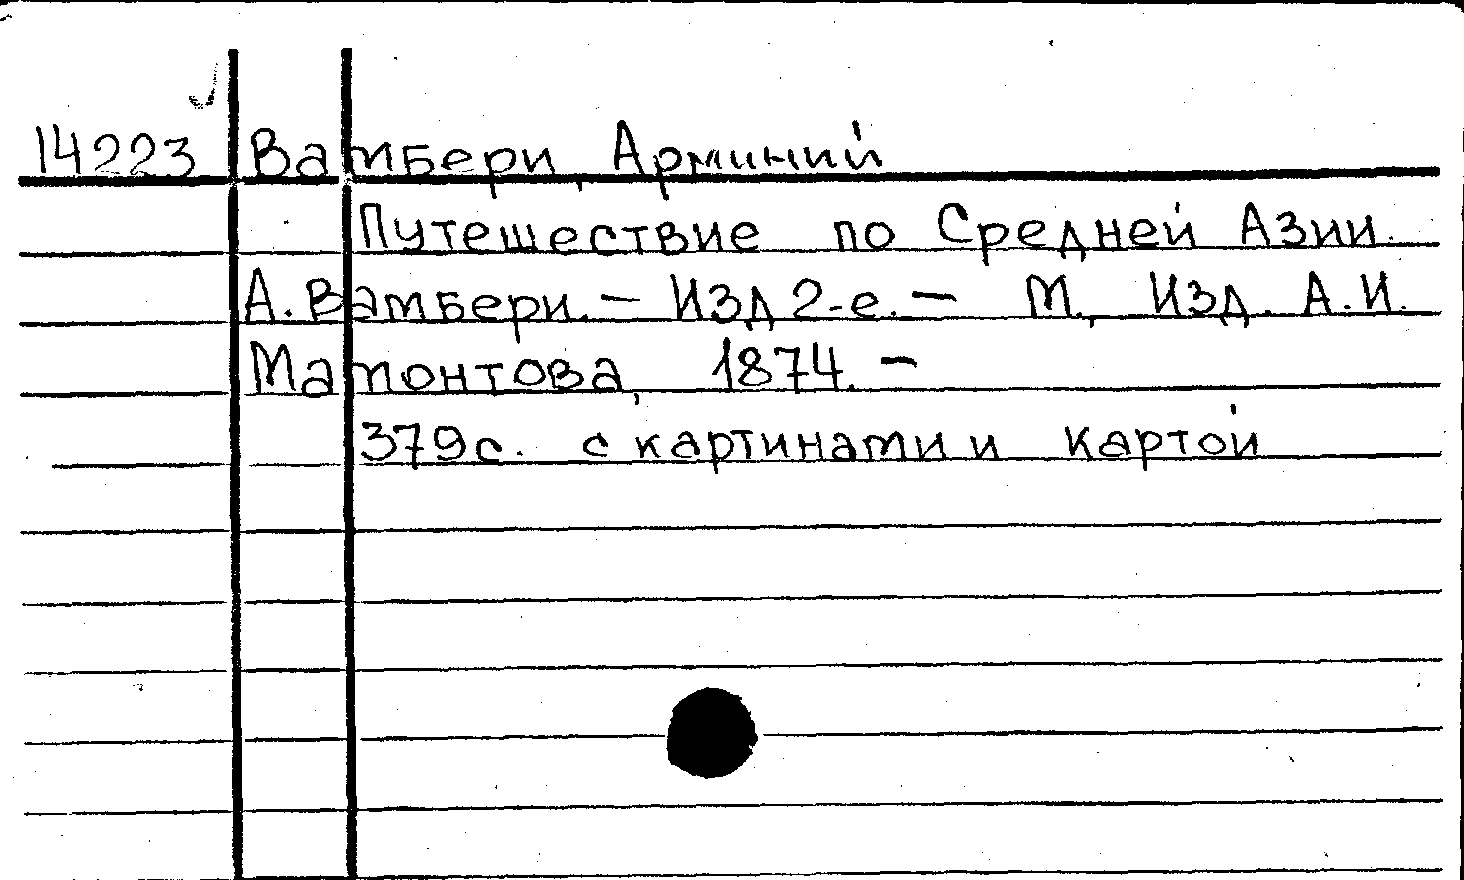 14223 Вамбери, Арминий
Путешествие по Средней Азии.
А. Вамбери. — Изд 2-е. — М., Изд. А.И.
Мамонтова, 1874. —
379с. с картинами и картой